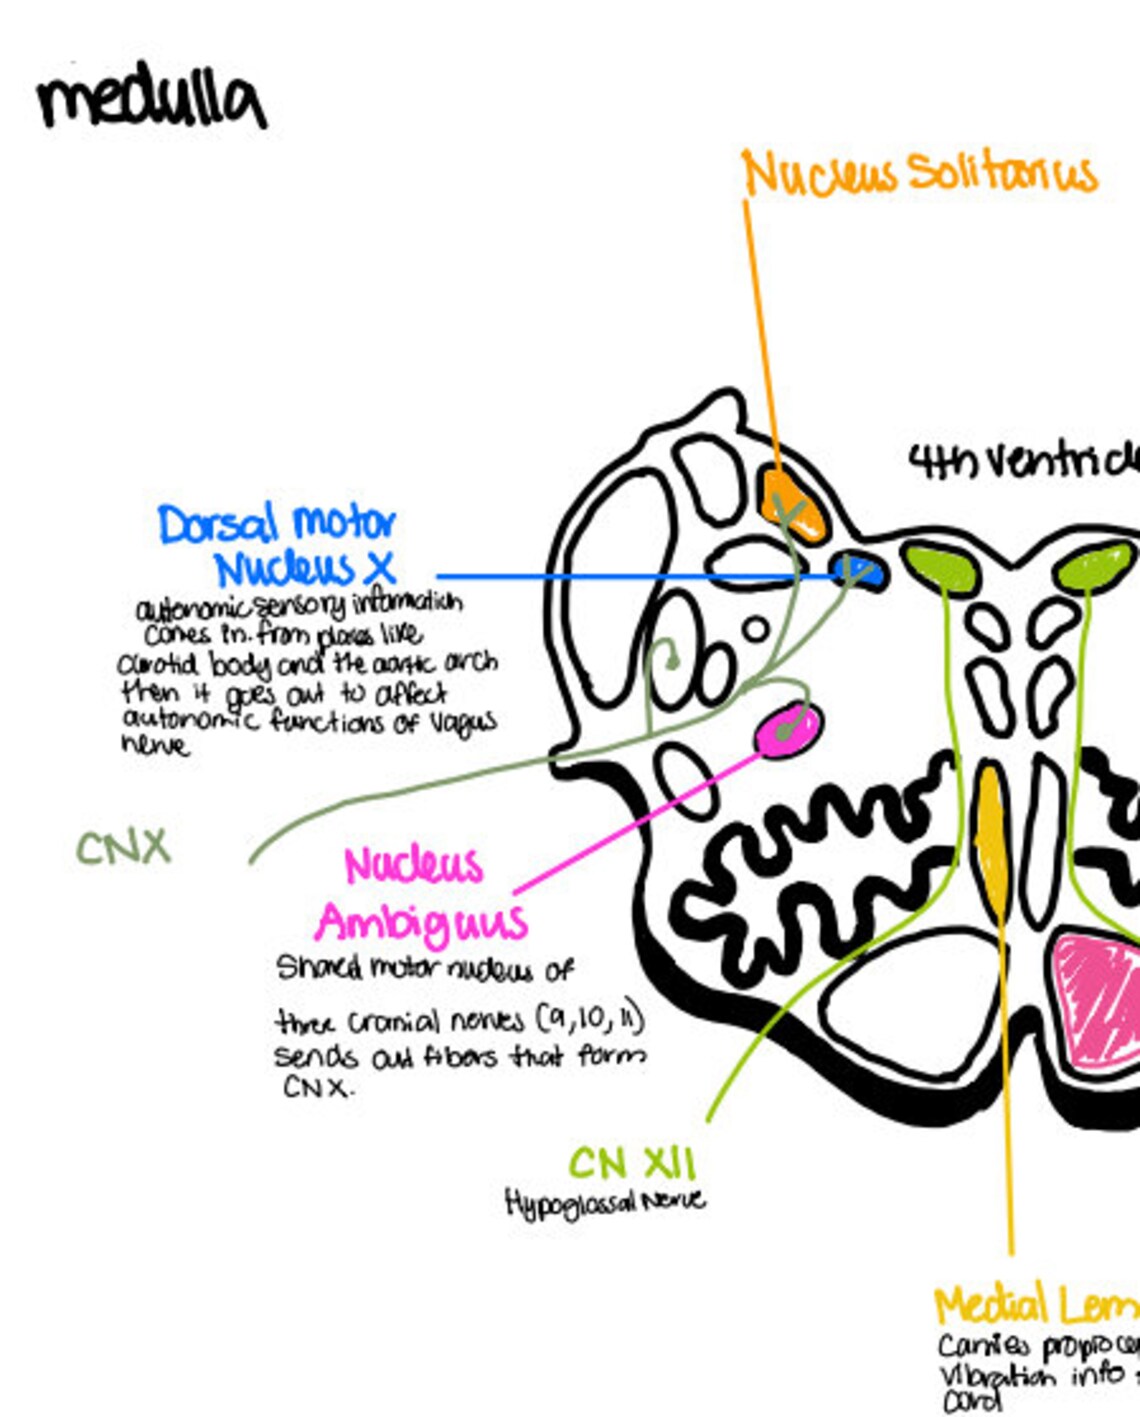 medulla
Nucleus Solitarius
4th ventricle
Dorsal motor
Nucleus X
autonomic sensory information
comes in from places like
carotid body and the aortic arch
then it goes out to affect
autonomic functions of vagus
nerve
CNX
Nucleus
Ambiguus
Shared motor nucleus of
three cranial nerves (9, 10, 11)
sends out fibers that form
CNX.
CN XII
Hypoglossal Nerve
Medial Lem
Carries proprocep
vibration info
cord